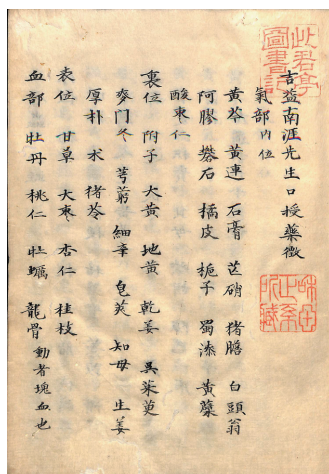 吉益南涯先生口授藥徵
氣部内位
黄芩 黄連 石膏 芒硝 猪膽 白頭翁
阿膠 礬石 橘皮 梔子 蜀漆 黄蘗
酸棗仁
裏位 附子 大黄 地黄 乾姜 呉茱萸
麥門冬 芎藭 細辛 皂莢 知母 生姜
厚朴 朮 猪苓
表位 甘草 大枣 杏仁 桂枝
血部 牡丹 桃仁 牡蠣 龍骨 動者塊血也
此君亭
圖書記